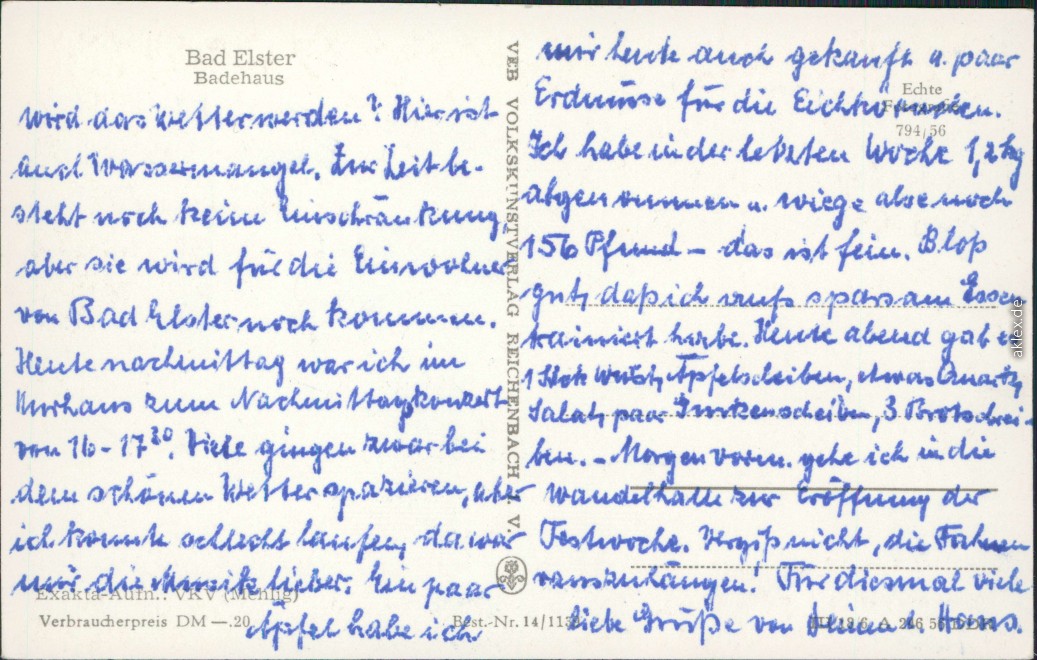 Bad Elster
Badehaus
wird das Wetter werden? Hier ist
auch Wassermangel. Zur Zeit be-
steht noch keine Einschränkung,
aber sie wird für die Einwohner
von Bad Elster noch kommen.
Heute nachmittag war ich im
Kurhaus zum Nachmittagskonzert
von 16-17³⁰. Viele gingen zwar bei
dem schönen Wetter spazieren, aber
ich konnte schlecht laufen, da war
mir die Musik lieber. Ein paar
Exakta-Aufn.: VKV (Mehlig)
Verbraucherpreis DM —.20
Äpfel habe ich
VEB VOLKSKUNSTVERLAG REICHENBACH I. V.
Best.-Nr. 14/115
mir heute auch gekauft u. paar
Echte
Erdnüsse für die Eichhörnchen.
794/56
Ich habe in der letzten Woche 1,2 kg
abgenommen u. wiege also noch
156 Pfund – das ist fein. Bloß
gut, daß ich aufs sparsam Essen
trainiert habe. Heute abend gab es
1 Stck Wurst, Apfelscheiben, etwas Quark,
Salat, paar Gurkenscheiben, 3 Brotschei-
ben. – Morgen vorm. gehe ich in die
Wandelhalle zur Eröffnung der
Festwoche. Vergiß nicht, die Fahnen
rauszuhängen! Für diesmal viele
liebe Grüße von Deinem Hans.
aklex.de